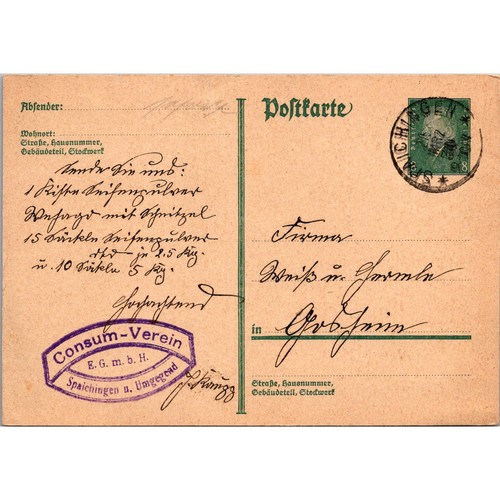 Absender:
Wohnort:
Straße, Hausnummer,
Gebäudeteil, Stockwerk
Senden Sie uns:
1 Kiste Seifenpulver
Wehago mit Schnitzel
15 Säckle Seifenpulver
je 2.5 Kg.
u. 10 Säckle 5 Kg.
Hochachtend
Consum-Verein
E. G. m. b. H.
Spaichingen u. Umgegend
Postkarte
SPAICHINGEN
8
Firma
Weiß u.
in Gosheim
Straße, Hausnummer,
Gebäudeteil, Stockwerk